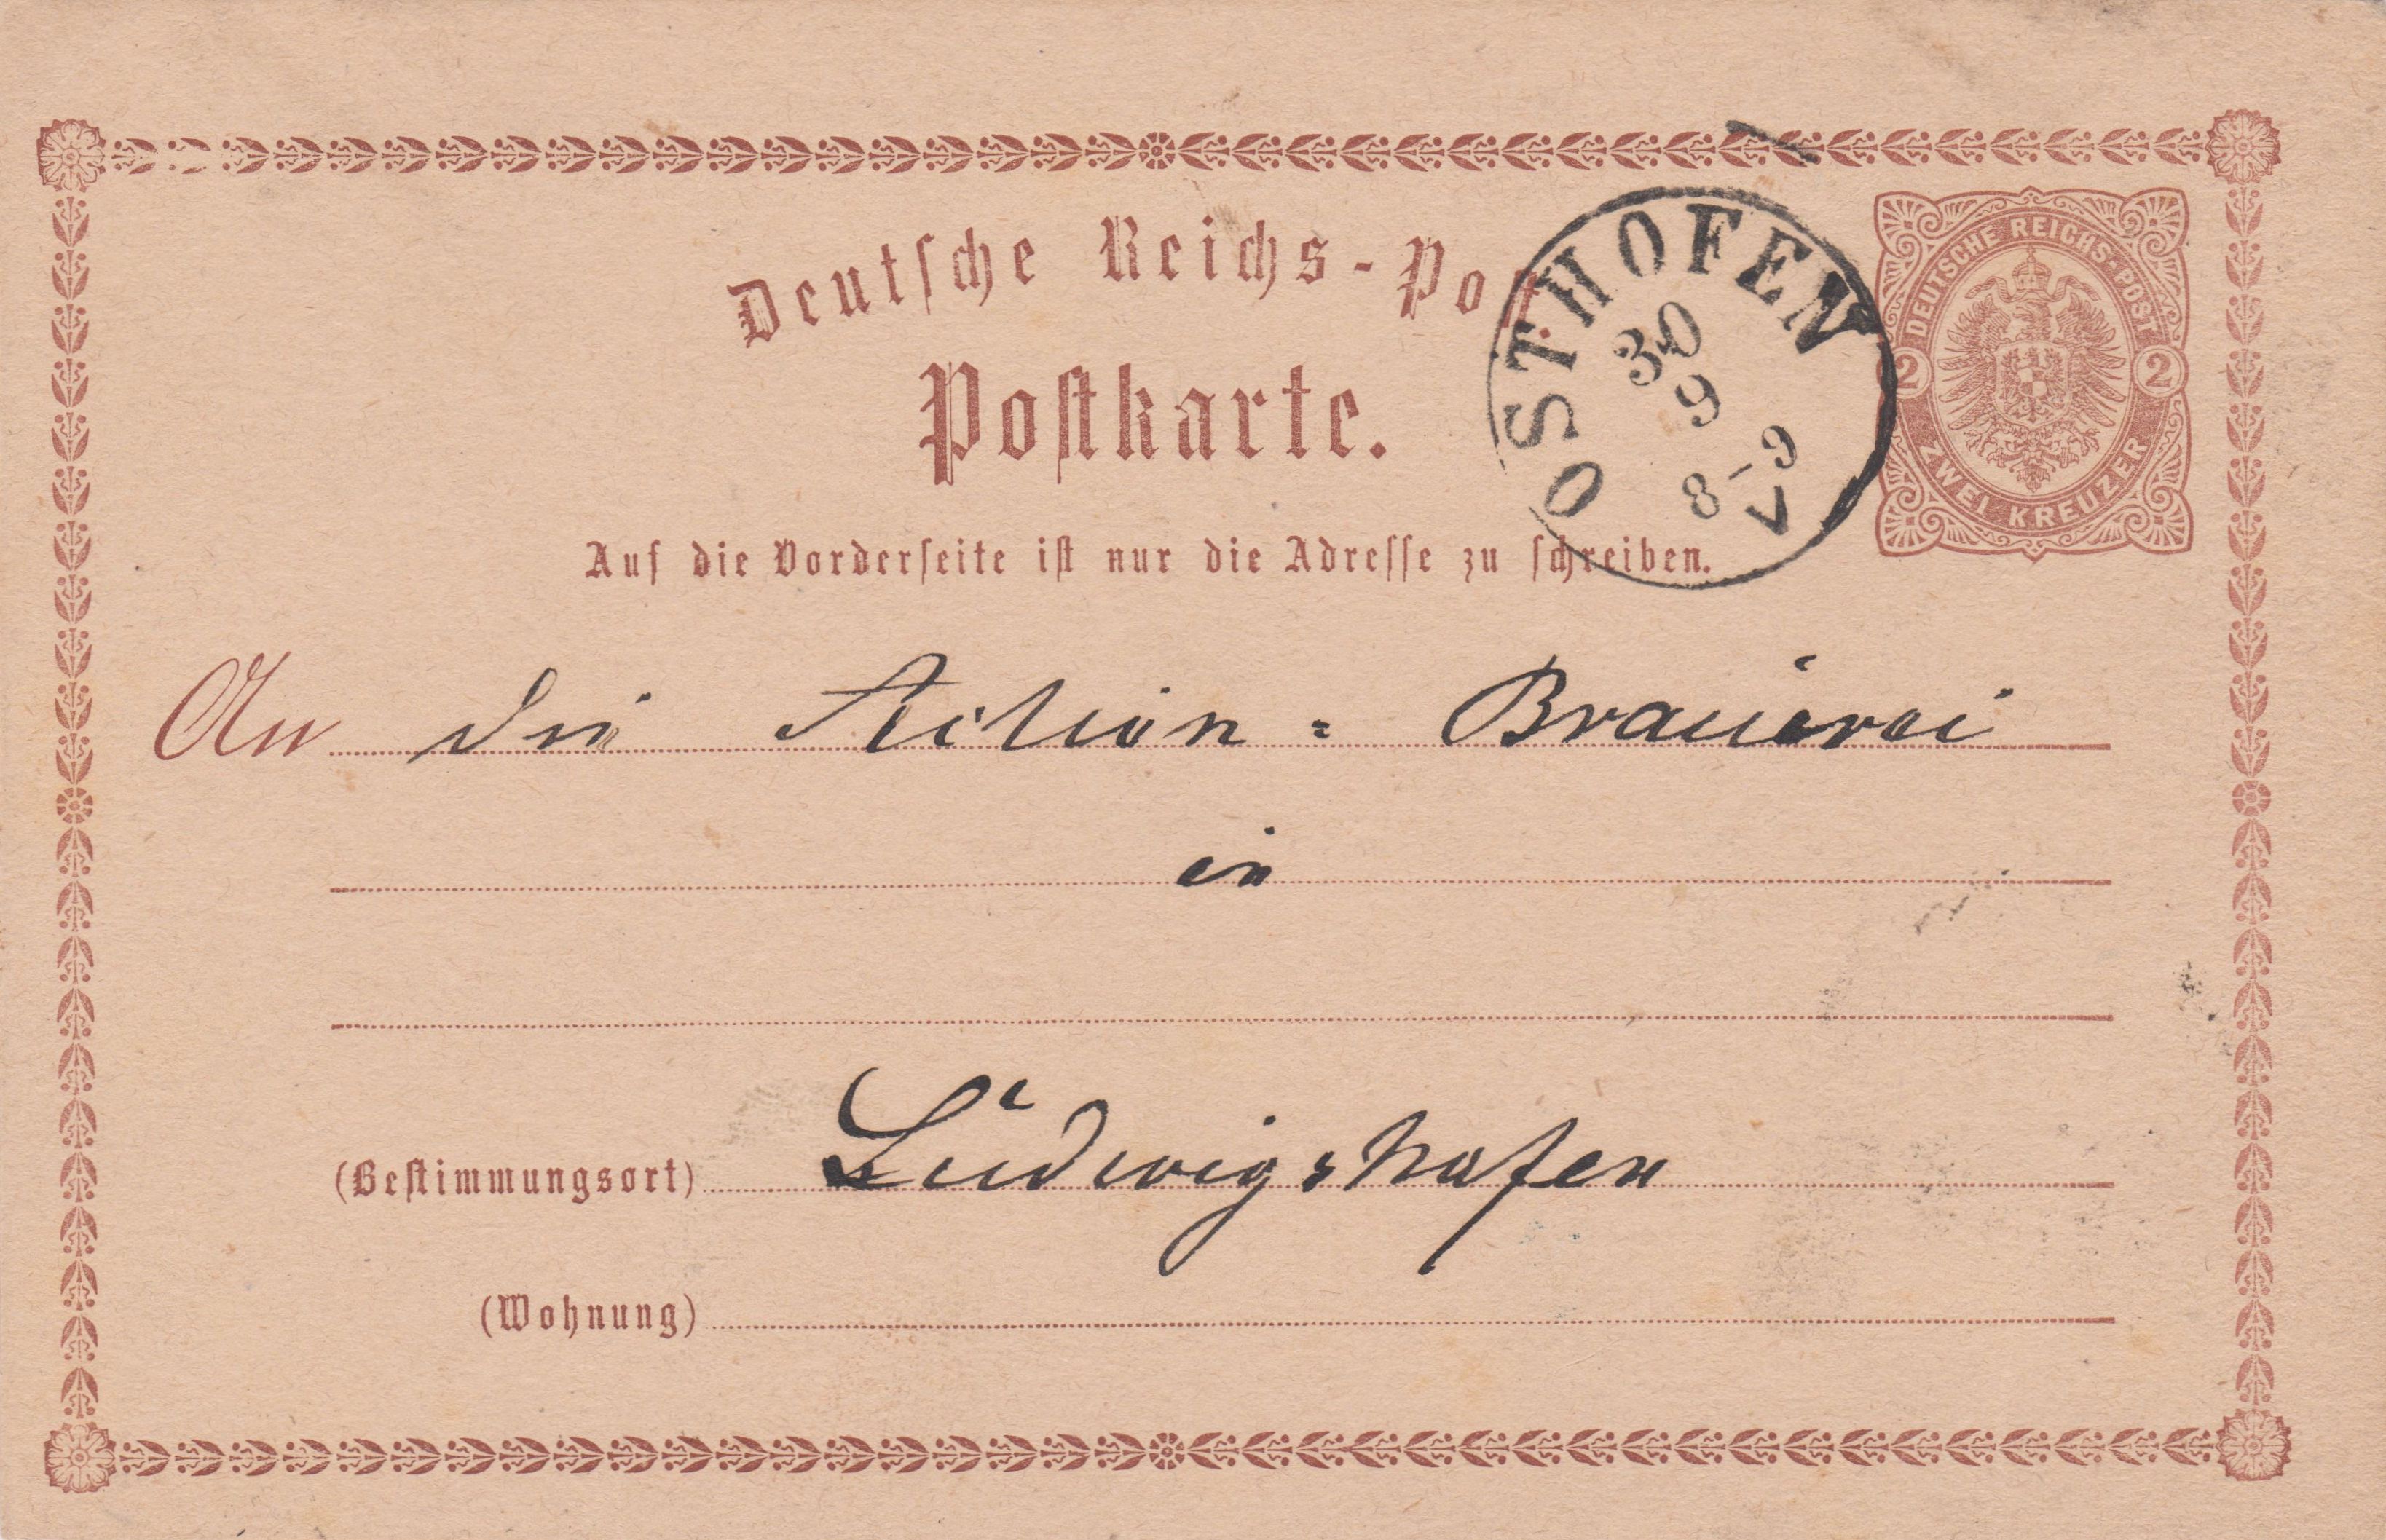 Deutsche Reichs-Post
Postkarte.
Auf die Vorderseite ist nur die Adresse zu schreiben.
OSTHOFEN
30
9
8-9
V
DEUTSCHE REICHS-POST
2 2
ZWEI KREUZER
An die Actien-Brauerei
in
(Bestimmungsort) Ludwigshafen
(Wohnung)